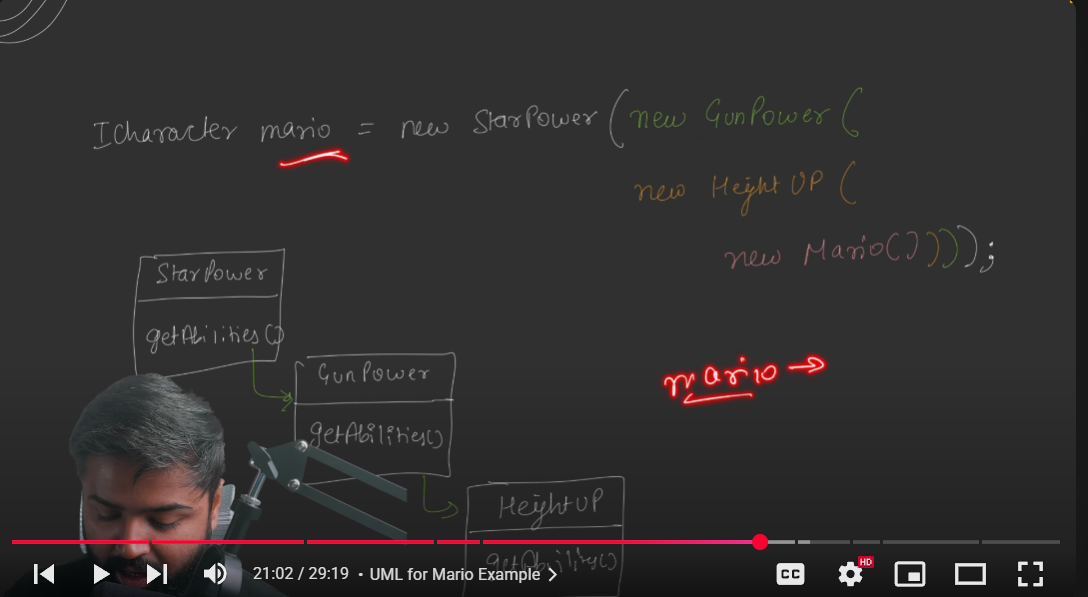 ICharacter mario = new StarPower (new GunPower (
new HeightUP (
new Mario())));
StarPower
getAbilities()
GunPower
getAbilities()
mario →
HeightUP
getAbilities()
21:02 / 29:19 • UML for Mario Example
CC
HD